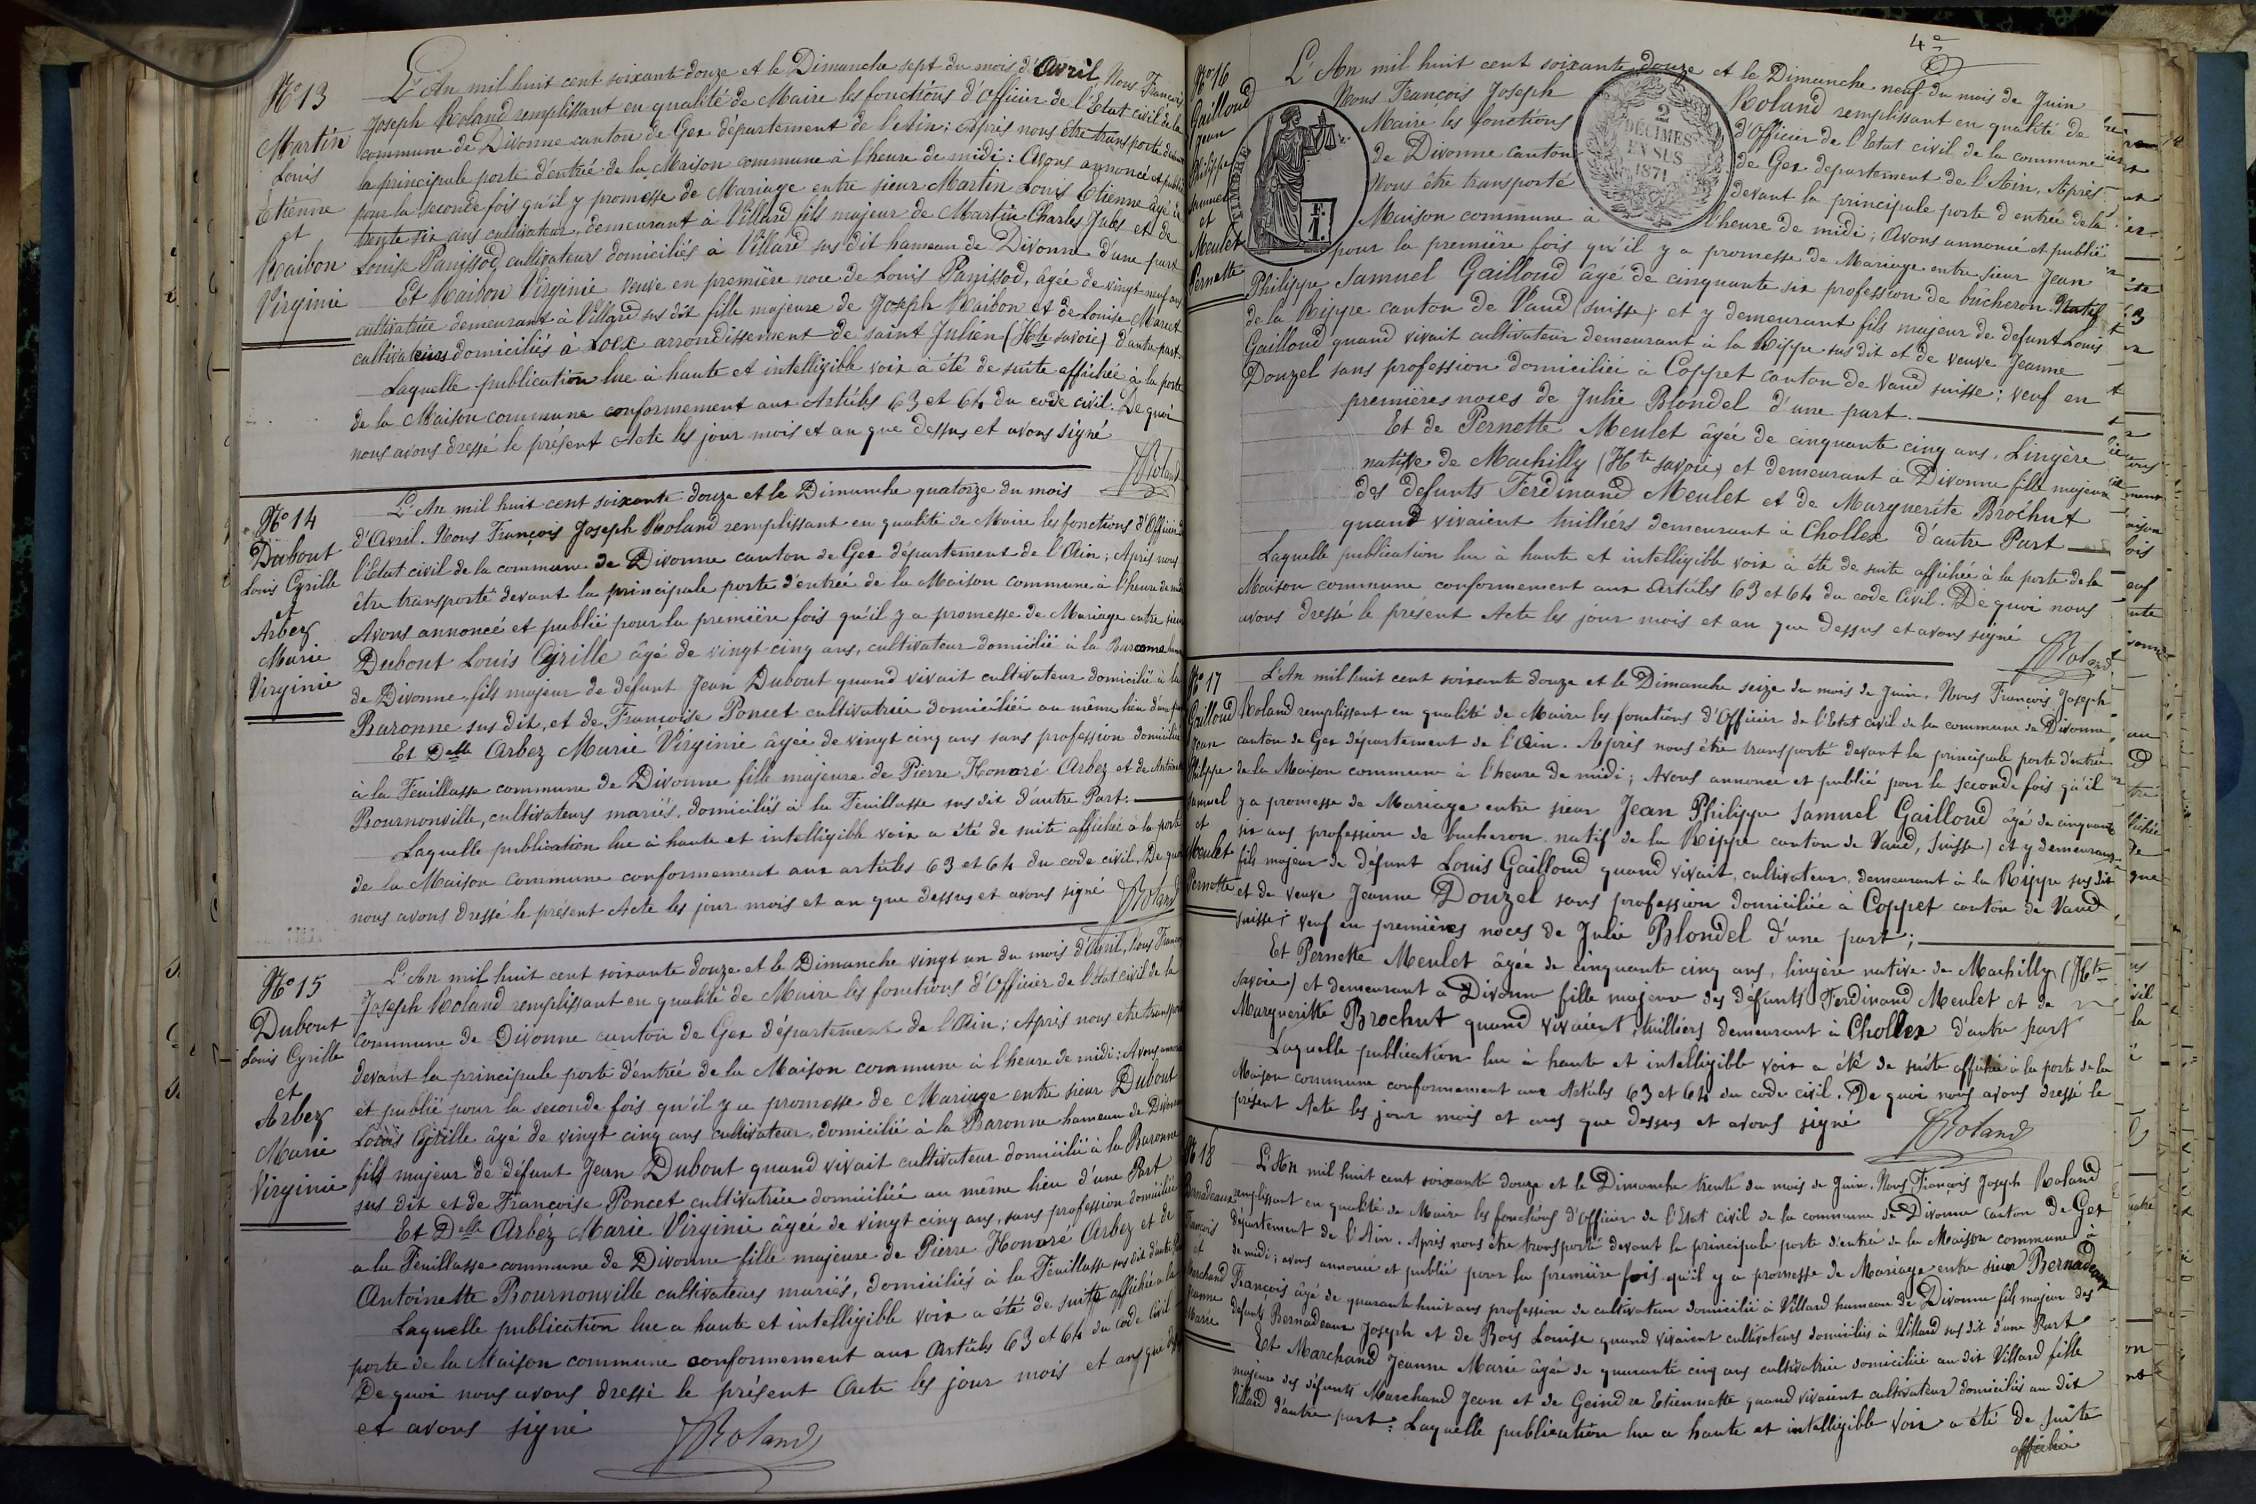 N° 13
Martin
Louis
Etienne
et
Raibon
Virginie
L'An mil huit cent soixante douze et le Dimanche sept du mois d'Avril Nous François
Joseph Roland remplissant en qualité de Maire les fonctions d'Officier de l'Etat civil de la
commune de Divonne canton de Gex département de l'Ain; Après nous être transporté devant
la principale porte d'entrée de la Maison commune à l'heure de midi: Avons annoncé et publié
pour la seconde fois qu'il y promesse de Mariage entre sieur Martin Louis Etienne âgé de
trente six ans cultivateur, demeurant à Villard fils majeur de Martin Charles Jules et de
Louise Panissod, cultivateurs domiciliés à Villard sus dit hameau de Divonne d'une part
Et Raibon Virginie veuve en première noce de Louis Panissod, âgée de vingt neuf ans
cultivatrice demeurant à Villard sus dit fille majeure de Joseph Raibon et de Louise Maret
cultivateurs domiciliés à Loex arrondissement de saint Julien (Hte savoie) d'autre part
Laquelle publication lue à haute et intelligible voix à été de suite affichée à la porte
de la Maison commune conformement aux Articles 63 et 64 du code civil. De quoi
nous avons dressé le présent Acte les jour mois et an que dessus et avons signé
Roland
N° 14
Dubout
Louis Cyrille
et
Arbez
Marie
Virginie
L'An mil huit cent soixante douze et le Dimanche quatorze du mois
d'Avril. Nous François Joseph Roland remplissant en qualité de Maire les fonctions d'Officier de
l'Etat civil de la commune de Divonne canton de Gex département de l'Ain; Après nous
être transporté devant la principale porte d'entrée de la Maison commune à l'heure de midi
Avons annoncé et publié pour la première fois qu'il y a promesse de Mariage entre sieur
Dubout Louis Cyrille âgé de vingt cinq ans, cultivateur domicilié à la Baronne hameau
de Divonne, fils majeur de défunt Jean Dubout quand vivait cultivateur domicilié à la
Baronne sus dit, et de Françoise Poncet cultivatrice domiciliée au même lieu d'une part
Et Delle Arbez Marie Virginie âgée de vingt cinq ans sans profession domiciliée
à la Feuillasse commune de Divonne fille majeure de Pierre Honoré Arbez et de Antoinette
Bournonville, cultivateurs mariés, domiciliés à la Feuillasse sus dit d'autre Part.
Laquelle publication lue à haute et intelligible voix a été de suite affichée à la porte
de la Maison commune conformement aux articles 63 et 64 du code civil, De quoi
nous avons dressé le présent Acte les jour mois et an que dessus et avons signé
Roland
N° 15
Dubout
Louis Cyrille
et
Arbez
Marie
Virginie
L'An mil huit cent soixante douze et le Dimanche vingt un du mois d'Avril, Nous François
Joseph Roland remplissant en qualité de Maire les fonctions d'Officier de l'Etat civil de la
commune de Divonne canton de Gex département de l'Ain; Après nous etre transporté
devant la principale porte d'entrée de la Maison commune à l'heure de midi: Avons annoncé
et publié pour la seconde fois qu'il y a promesse de Mariage entre sieur Dubout
Louis Cyrille âgé de vingt cinq ans cultivateur, domicilié à la Baronne hameau de Divonne
fils majeur de défunt Jean Dubout quand vivait cultivateur domicilié à la Baronne
sus dit et de Françoise Poncet cultivatrice domiciliée au même lieu d'une Part
Et Delle Arbez Marie Virginie âgée de vingt cinq ans, sans profession domiciliée
a la Feuillasse commune de Divonne fille majeure de Pierre Honoré Arbez et de
Antoinette Bournonville cultivateurs mariés, domiciliés à la Feuillasse sus dit d'autre Part
Laquelle publication lue a haute et intelligible voix a été de suite affichée a la
porte de la Maison commune conformement aux Articles 63 et 64 du code civil
De quoi nous avons dressé le présent Acte les jour mois et an que dessus
et avons signé
Roland
4e
N° 16
Gailloud
Jean
Philippe
Samuel
et
Meulet
Pernette
2
DÉCIMES
EN SUS
1871
L'An mil huit cent soixante douze et le Dimanche neuf du mois de Juin
Nous François Joseph Roland remplissant en qualité de
Maire les fonctions d'Officier de l'Etat civil de la commune
de Divonne canton de Gex departement de l'Ain, Après
Nous être transporté devant la principale porte d'entrée de la
Maison commune à l'heure de midi; Avons annoncé et publié
pour la première fois qu'il y a promesse de Mariage entre sieur Jean
Philippe Samuel Gailloud âgé de cinquante six profession de bûcheron Natif
de la Rippe canton de Vaud (suisse) et y demeurant fils majeur de defunt Louis
Gailloud quand vivait cultivateur demeurant à la Rippe sus dit et de veuve Jeanne
Douzel sans profession domiciliée à Coppet canton de Vaud suisse; veuf en
premières noces de Julie Blondel d'une part.
Et de Pernette Meulet âgée de cinquante cinq ans, Lingère
native de Machilly (Hte savoie) et demeurant à Divonne fille majeure
des defunts Ferdinand Meulet et de Marguerite Brochut
quand vivaient tuilliers demeurant à Chollex d'autre Part
Laquelle publication lue à haute et intelligible voix à été de suite affichée à la porte de la
Maison commune conformement aux Articles 63 et 64 du code Civil. De quoi nous
avons dressé le présent Acte les jour mois et an que dessus et avons signé
Roland
N° 17
Gailloud
Jean
Philippe
Samuel
et
Meulet
Pernette
L'An mil huit cent soixante douze et le Dimanche seize du mois de Juin. Nous François Joseph
Roland remplissant en qualité de Maire les fonctions d'Officier de l'Etat civil de la commune de Divonne
canton de Gex département de l'Ain. Après nous être transporté devant la principale porte d'entrée
de la Maison commune à l'heure de midi; Avons annoncé et publié pour la seconde fois qu'il
y a promesse de Mariage entre sieur Jean Philippe Samuel Gailloud âgé de cinquante
six ans profession de bucheron natif de la Rippe canton de Vaud, suisse) et y demeurant
fils majeur de défunt Louis Gailloud quand vivait, cultivateur demeurant à la Rippe sus dit
et de veuve Jeanne Douzel sans profession domiciliée à Coppet canton de Vaud
suisse; veuf en premières noces de Julie Blondel d'une part;
Et Pernette Meulet âgée de cinquante cinq ans, lingère native de Machilly (Hte
savoie) et demeurant à Divonne fille majeure des défunts Ferdinand Meulet et de
Margueritte Brochut quand vivaient, tuilliers demeurant à Chollex d'autre part
Laquelle publication lue à haute et intelligible voix a été de suite affichée à la porte de la
Maison commune conformement aux Articles 63 et 64 du code civil. De quoi nous avons dressé le
présent Acte les jour mois et ans que dessus et avons signé
Roland
N° 18
Bernadeaux
François
et
Marchand
Jeanne
Marie
L'An mil huit cent soixante douze et le Dimanche trente du mois de Juin. Nous François Joseph Roland
remplissant en qualité de Maire les fonctions d'Officier de l'Etat civil de la commune de Divonne canton de Gex
département de l'Ain. Après nous être transporté devant la principale porte d'entrée de la Maison commune à
de midi; avons annoncé et publié pour la première fois qu'il y a promesse de Mariage entre sieur Bernadeaux
François âgé de quarante huit ans profession de cultivateur domicilié à Villard hameau de Divonne fils majeur des
defunts Bernadeaux Joseph et de Boys Louise quand vivaient cultivateurs domiciliés à Villard sus dit d'une Part
Et Marchand Jeanne Marie âgée de quarante cinq ans cultivatrice domiciliée au dit Villard fille
majeure des défunts Marchand Jean et de Geindre Etiennette quand vivaient cultivateur domiciliés au dit
Villard d'autre part: Laquelle publication lue a haute et intelligible voix a été de suite
affichée